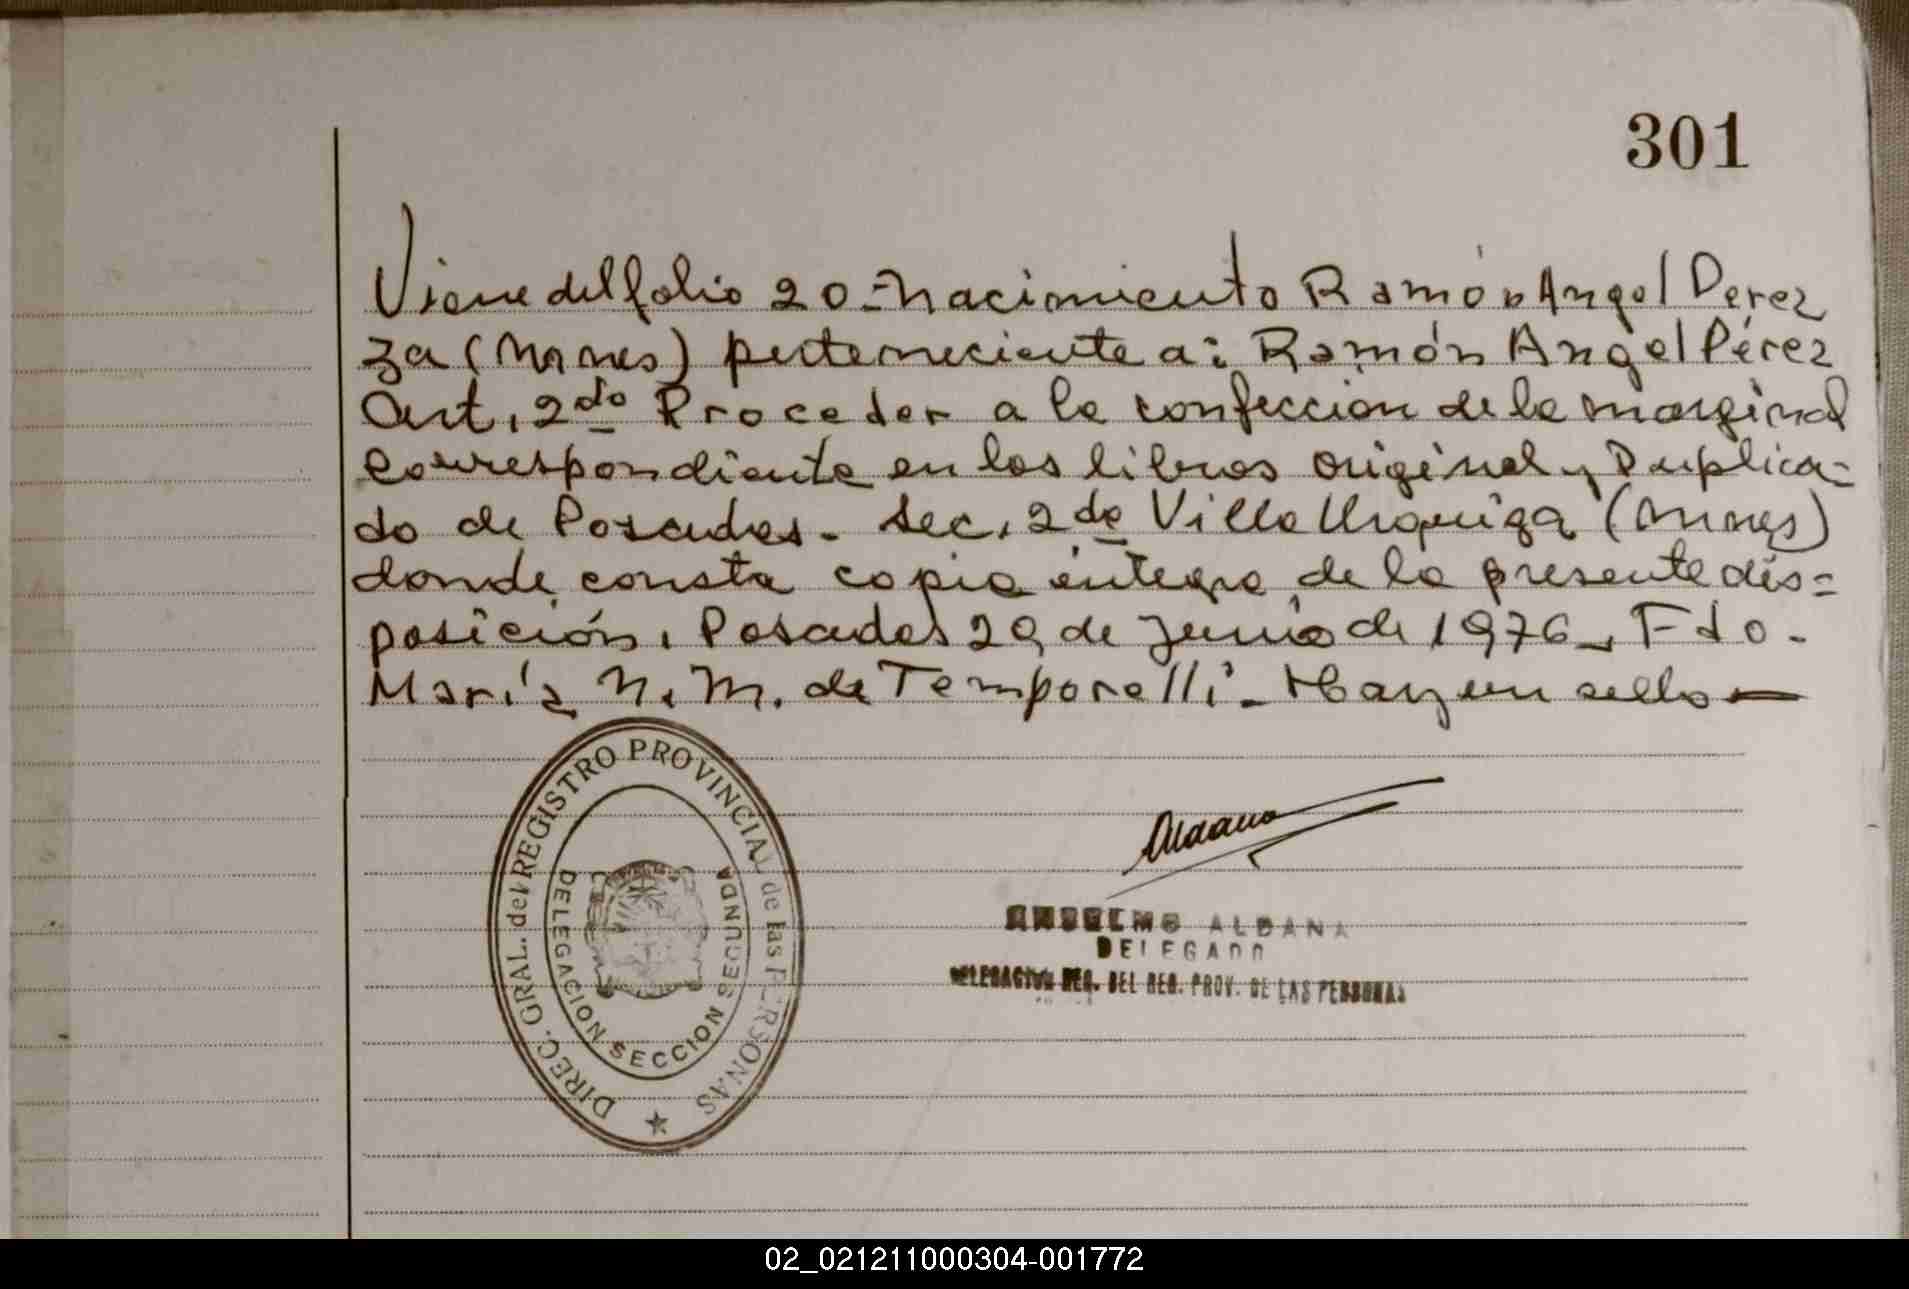 301
Viene del folio 20=Nacimiento Ramón Angel Perez
za (Mnes) perteneciente a: Ramón Angel Pérez
Art. 2do Proceder a la confeccion de la marginal
correspondiente en los libros original y Duplica=
do de Posadas. Sec. 2da Villa Urquiza (Mnes)
donde consta copia integra de la presente dis=
posición. Posadas 29 de Junio de 1976. Fdo.
María N. M. de Temporelli. Hay un sello
DIREC. GRAL. del REGISTRO PROVINCIAL de las PERSONAS
DELEGACION SECCION SEGUNDA
Aldana
ANSELMO ALDANA
DELEGADO
DELEGACION REG. DEL REG. PROV. DE LAS PERSONAS
02_021211000304-001772